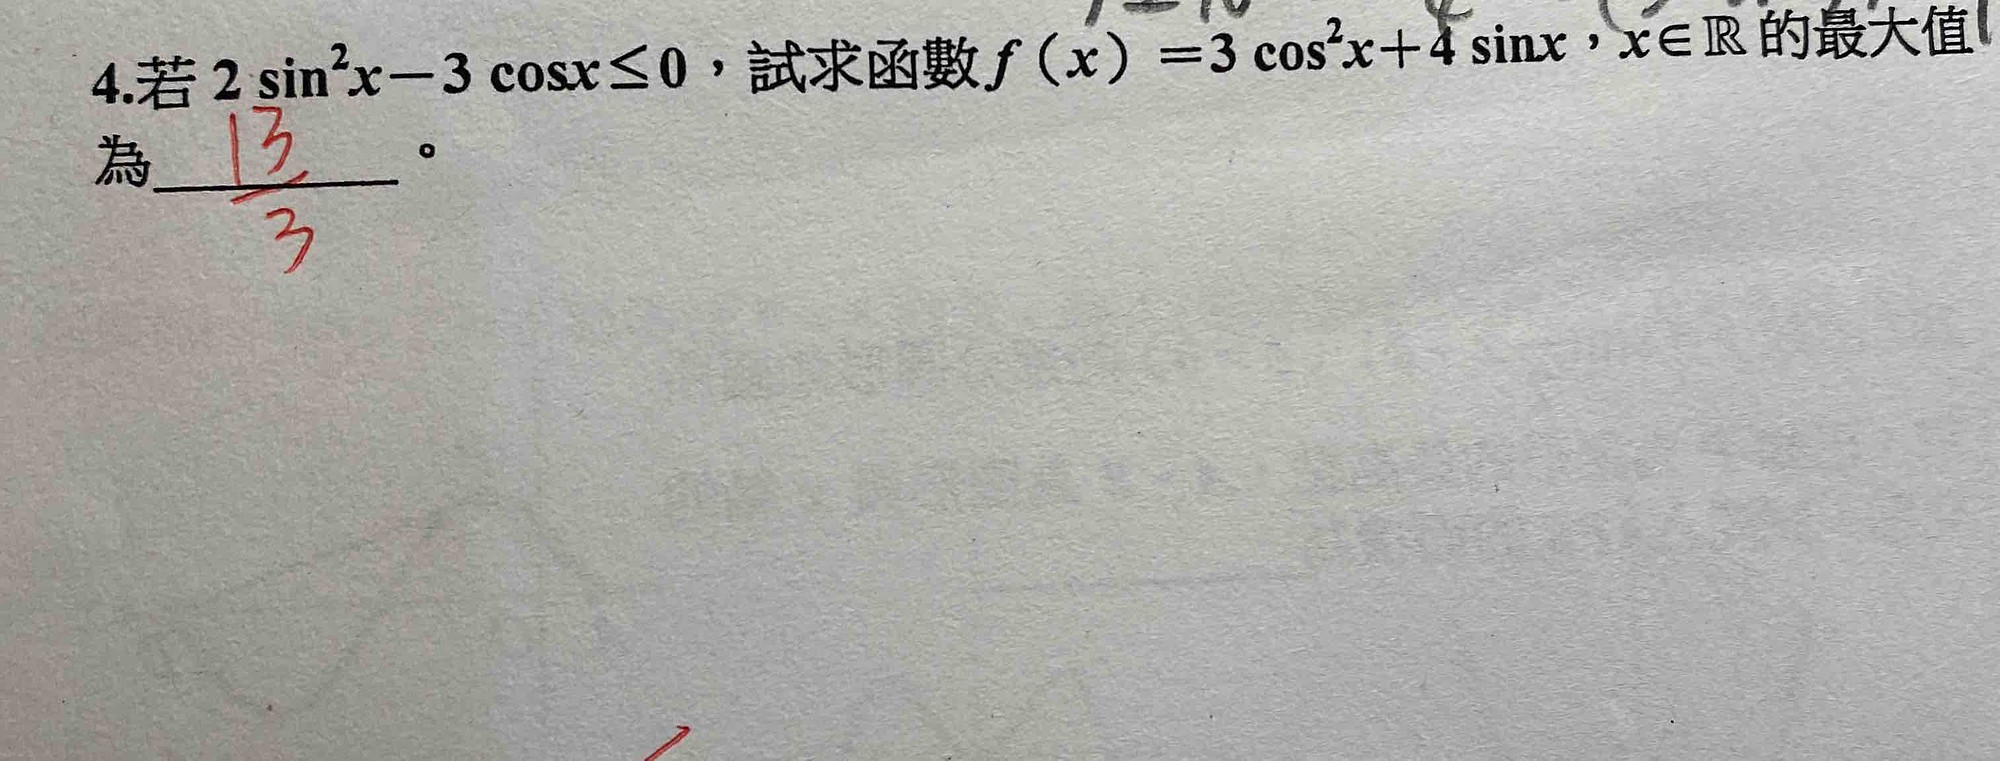 4.若 2 sin²x－3 cosx≤0，試求函數 f（x）＝3 cos²x＋4 sinx，x∈ℝ 的最大值
為 13/3 。